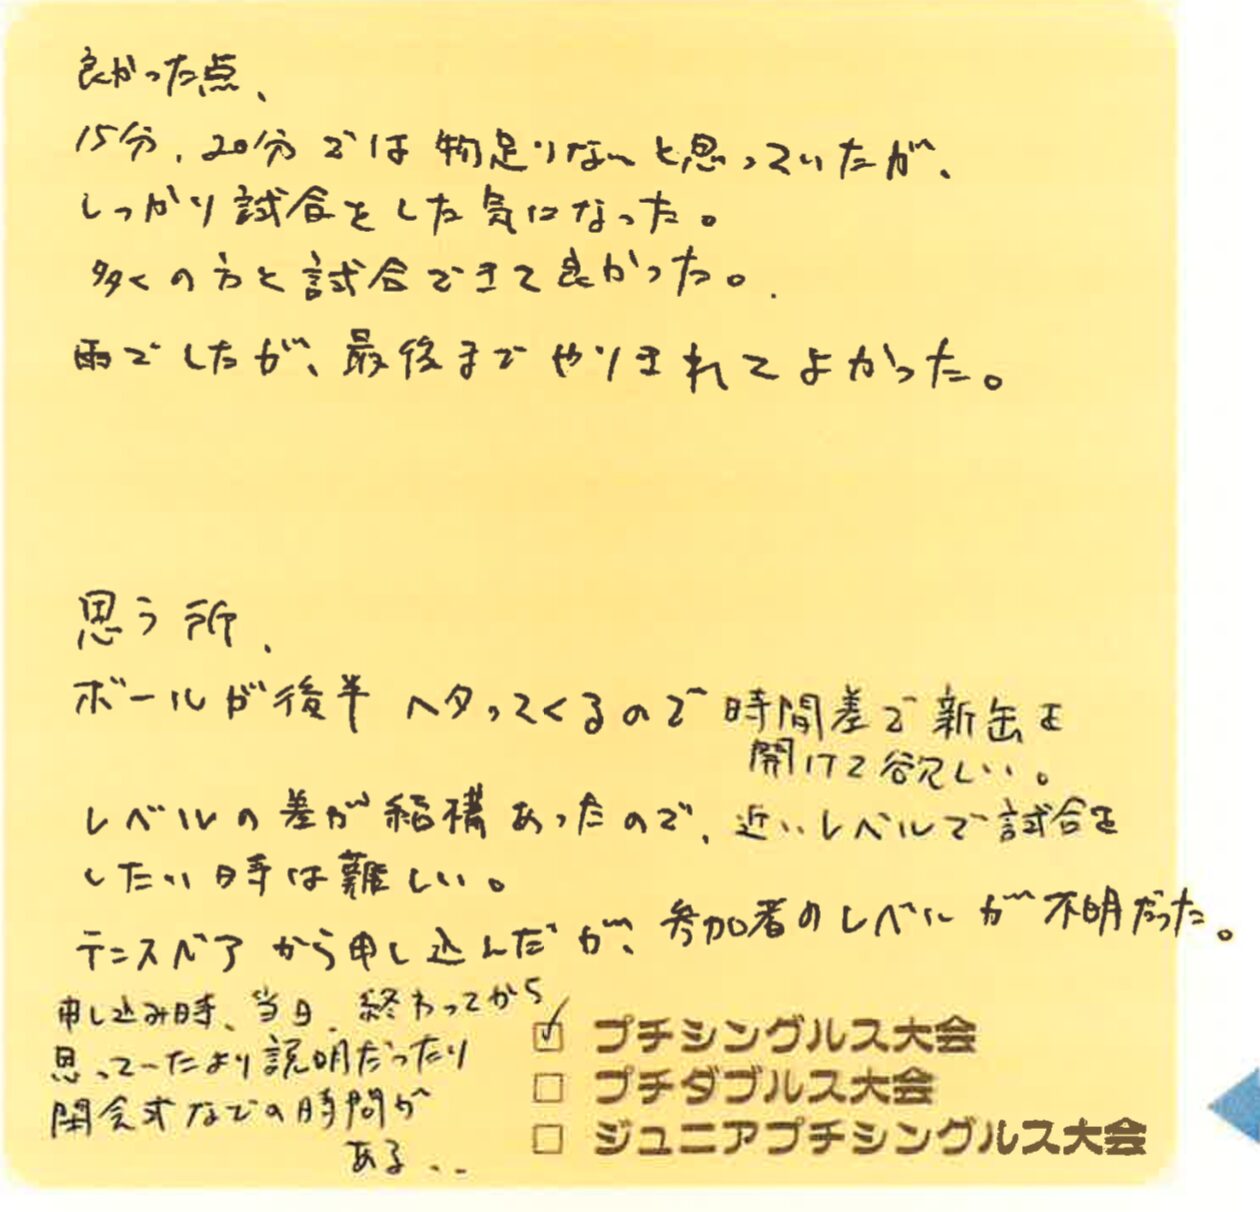 良かった点、
15分、20分では物足りないと思っていたが、
しっかり試合をした気になった。
多くの方と試合できて良かった。
雨でしたが、最後までやりきれてよかった。
思う所、
ボールが後半ヘタってくるので時間差で新缶を
開けて欲しい。
レベルの差が結構あったので、近いレベルで試合を
したい時は難しい。
テニスベアから申し込んだが、参加者のレベルが不明だった。
申し込み時、当日、終わってから
思っていたより説明だったり
閉会式などの時間が
ある..
☑ プチシングルス大会
□ プチダブルス大会
□ ジュニアプチシングルス大会